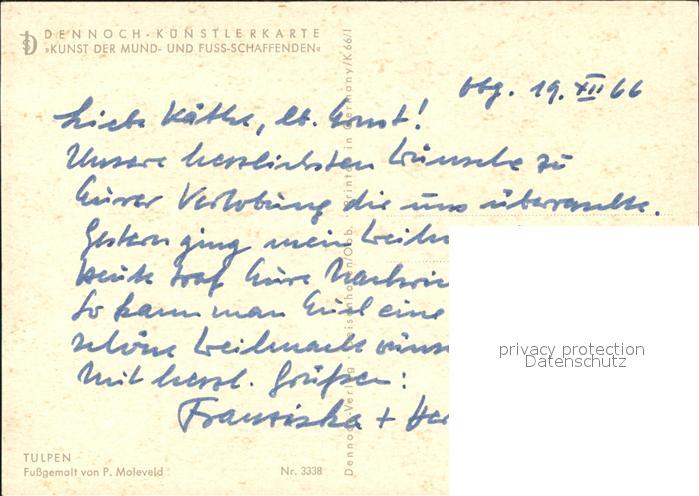 DENNOCH-KÜNSTLERKARTE
»KUNST DER MUND- UND FUSS-SCHAFFENDEN«
19. XII 66
Liebe Käthe, lb. Ernst!
Unsere herzlichsten Wünsche zu
Eurer Verlobung die uns überraschte.
Gestern ging mein Weihn
heute traf Eure Nachric
So kann man Euch eine
schöne Weihnacht wüns
Mit herzl. Grüßen:
Franziska +
privacy protection
Datenschutz
TULPEN
Fußgemalt von P. Moleveld
Nr. 3338
Dennoch-Verlag, Printed in Germany/K 66/1